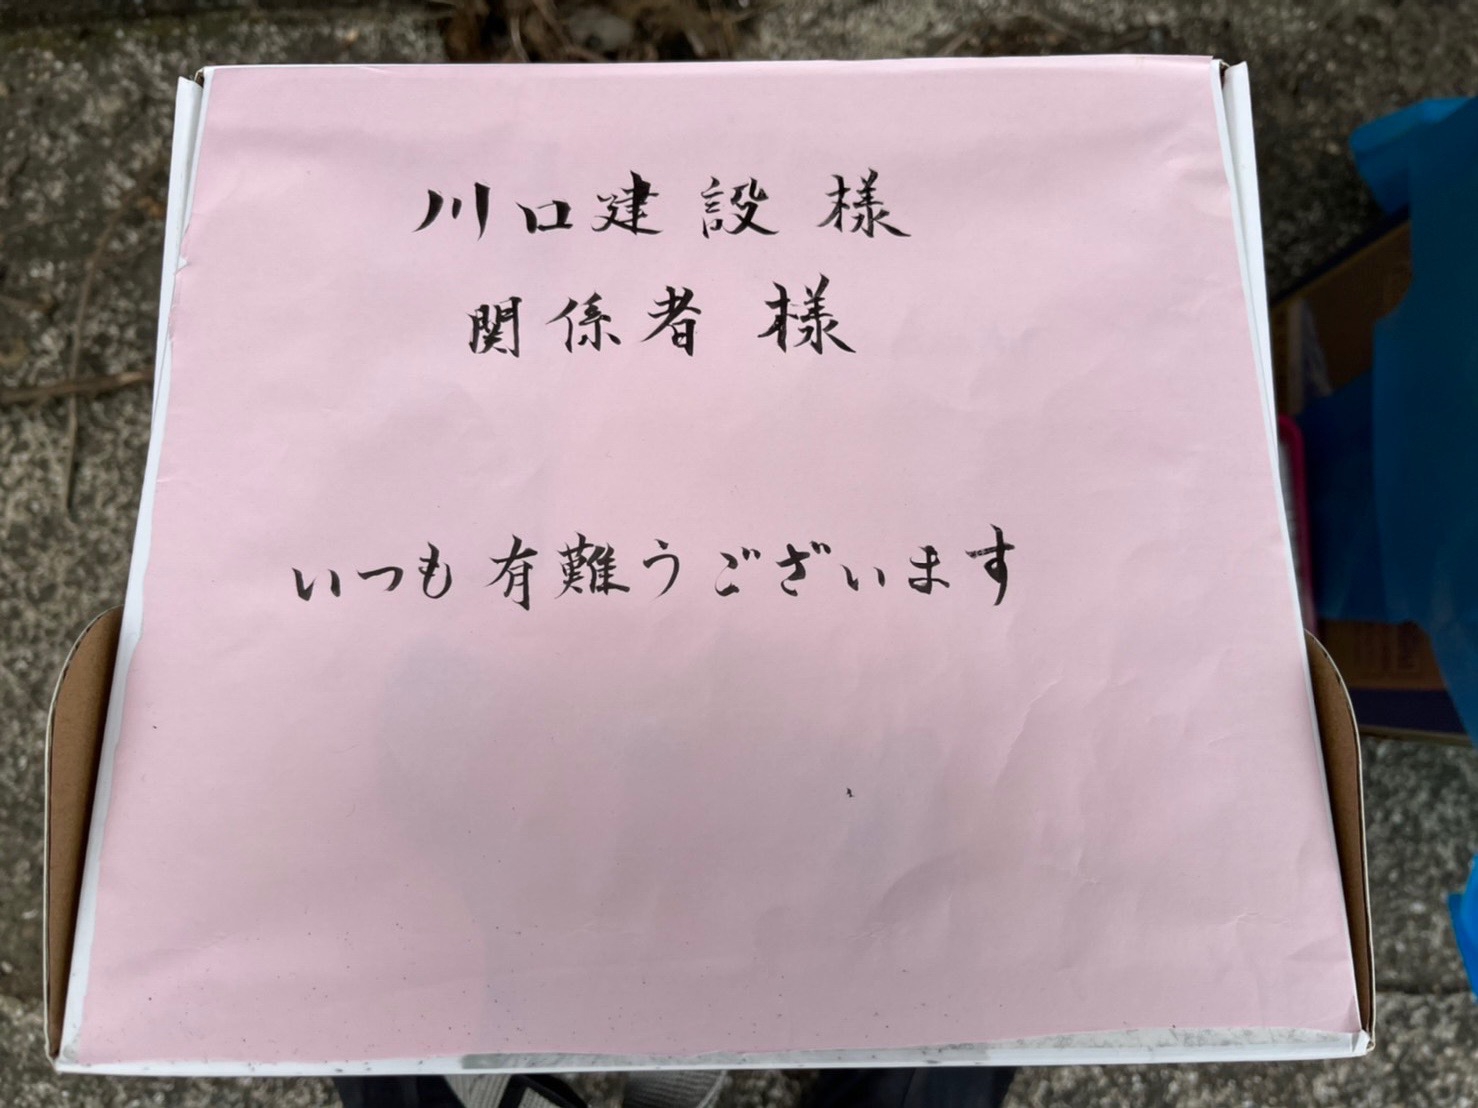 川口建設様
関係者様
いつも有難うございます